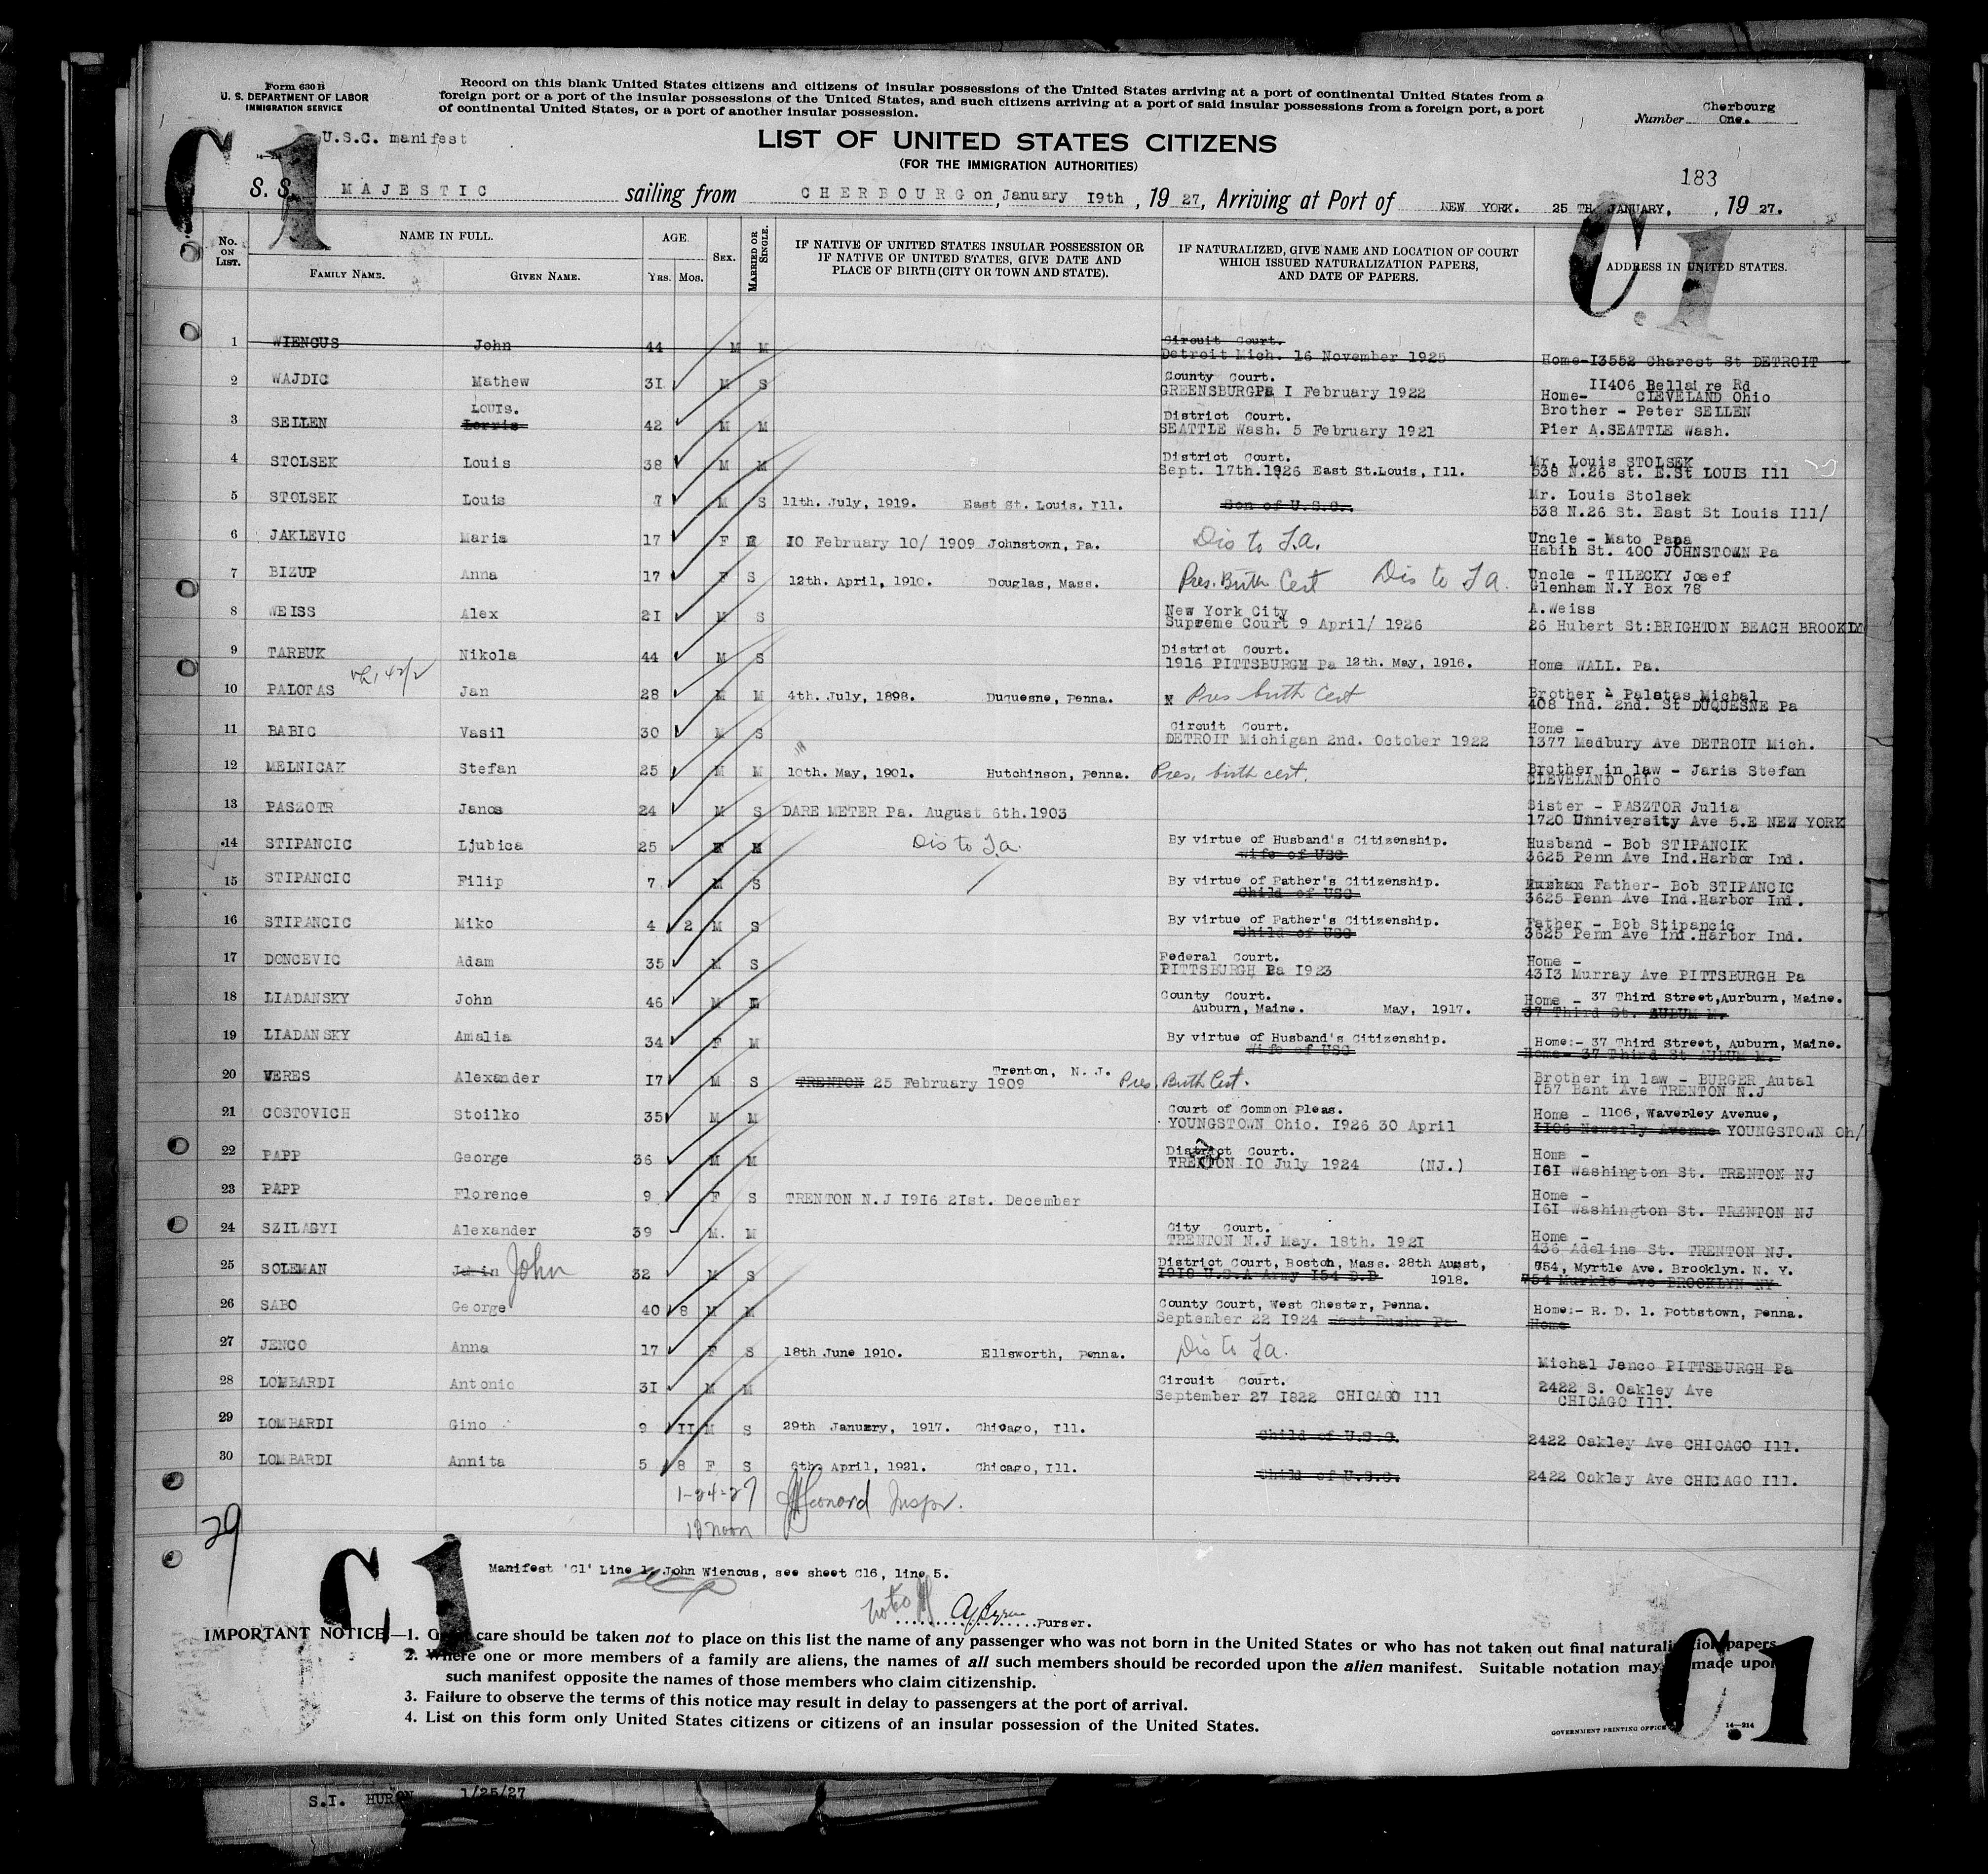 Form 630 B
U. S. DEPARTMENT OF LABOR
IMMIGRATION SERVICE
Record on this blank United States citizens and citizens of insular possessions of the United States arriving at a port of continental United States from a
foreign port or a port of the insular possessions of the United States, and such citizens arriving at a port of said insular possessions from a foreign port, a port
of continental United States, or a port of another insular possession.
Cherbourg
Number One.
U.S.C. manifest
14—214
C1
LIST OF UNITED STATES CITIZENS
(FOR THE IMMIGRATION AUTHORITIES)
183
S. S. MAJESTIC sailing from CHERBOURG on, January 19th, 1927, Arriving at Port of NEW YORK. 25 TH JANUARY, , 1927.
C1
No. ON LIST. NAME IN FULL. AGE SEX. MARRIED OR SINGLE. IF NATIVE OF UNITED STATES INSULAR POSSESSION OR IF NATIVE OF UNITED STATES, GIVE DATE AND PLACE OF BIRTH (CITY OR TOWN AND STATE). IF NATURALIZED, GIVE NAME AND LOCATION OF COURT WHICH ISSUED NATURALIZATION PAPERS, AND DATE OF PAPERS. ADDRESS IN UNITED STATES.
FAMILY NAME. GIVEN NAME. YRS. MOS.
1 WIENCUS John 44 M M Circuit Court. Detroit Mich. 16 November 1925 Home-I3552 Charest St DETROIT
2 WAJDIC Mathew 3I M S County Court. GREENSBURG I February 1922 Home- II406 Bellaire Rd CLEVELAND Ohio
3 SELLEN LOUIS. Lorris 42 M M District Court. SEATTLE Wash. 5 February 1921 Brother - Peter SELLEN Pier A.SEATTLE Wash.
4 STOLSEK Louis 38 M M District Court. Sept. 17th.1926 East St.Louis, Ill. Mr. Louis STOLSEK 538 N.26 st. E.St LOUIS Ill
5 STOLSEK Louis 7 M S 11th. July, 1919. East St. Louis. Ill. Son of U.S.C. Mr. Louis Stolsek 538 N.26 St. East St Louis Ill/
6 JAKLEVIC Maria 17 F 10 February 10/ 1909 Johnstown, Pa. Dis to I.a. Uncle - Mato Papa Habih St. 400 JOHNSTOWN Pa
7 BIZUP Anna 17 F S 12th. April, 1910. Douglas, Mass. Pres. Birth Cert Dis to I a. Uncle - TILECKY Josef Glenham N.Y Box 78
8 WEISS Alex 2I M S New York City Supreme Court 9 April/ 1926 A.Weiss 26 Hubert St:BRIGHTON BEACH BROOKLY
9 TARBUK Nikola 44 M S District Court. 1916 PITTSBURGH Pa 12th. May, 1916. Home WALL. Pa.
10 PALOTAS Jan 28 M M 4th. July, 1898. Duquesne, Penna. Pres birth Cert Brother Palatas Michal 408 Ind. 2nd. St DUQUESNE Pa
11 BABIC Vasil 30 M S Circuit Court. DETROIT Michigan 2nd. October 1922 Home - 1377 Medbury Ave DETROIT Mich.
12 MELNICAK Stefan 25 M M 10th. May, 1901. Hutchinson, Penna. Pres. birth cert. Brother in law - Jaris Stefan CLEVELAND Ohio
13 PASZOTR Janos 24 M S DARE METER Pa. August 6th.1903 Sister - PASZTOR Julia 1720 Unniversity Ave 5.E NEW YORK
14 STIPANCIC Ljubica 25 Dis to I.a. By virtue of Husband's Citizenship. Wife of USC Husband - Bob STIPANCIK 3625 Penn Ave Ind.Harbor Ind.
15 STIPANCIC Filip 7 M S By virtue of Father's Citizenship. Child of USC Father- Bob STIPANCIC 3625 Penn Ave Ind.Harbor Ind.
16 STIPANCIC Miko 4 2 M S By virtue of Father's Citizenship. Child of USC Father - Bob Stipancic 3625 Penn Ave Ind.Harbor Ind.
17 DONCEVIC Adam 35 M S Federal Court. PITTSBURGH Pa I923 Home - 43I3 Murray Ave PITTSBURGH Pa
18 LIADANSKY John 46 M County Court. Auburn, Maine. May, 1917. Home - 37 Third Street,Aurburn, Maine. 37 Third St. AUBUM M.
19 LIADANSKY Amalia 34 F M By virtue of Husband's Citizenship. Wife of USC Home:- 37 Third Street, Auburn, Maine. Home- 37 Third St AUBUM M.
20 VERES Alexander I7 M S TRENTON 25 February 1909 Trenton, N. J. Pres. Birth Cert. Brother in law - BURGER Autal I57 Bant Ave TRENTON N.J
21 COSTOVICH Stoilko 35 M M Court of Common Pleas. YOUNGSTOWN Ohio. I926 30 April Home - 1106, Waverley Avenue, YOUNGSTOWN Oh/
22 PAPP George 36 M M District Court. TRENTON IO July 1924 (NJ.) Home - I6I Washington St. TRENTON NJ
23 PAPP Florence 9 F S TRENTON N.J I9I6 2Ist. December Home - I6I Washington St. TRENTON NJ
24 SZILAGYI Alexander 39 M. M City Court. TRENTON N.J May. 18th. 192I Home - 436 Adeline St. TRENTON NJ.
25 SOLEMAN John 32 M S District Court, Boston, Mass. 28th August, 1918. 1918 U.S.A Army I54 D.B 754, Myrtle Ave. Brooklyn. N. Y. 754 Murkle Ave BROOKLYN NY
26 SABO George 40 8 M M County Court, West Chester, Penna. September 22 I924 Home:- R. D. 1. Pottstown, Penna. Home
27 JENCO Anna 17 F S 18th June 1910. Ellsworth, Penna. Dis to I.a. Michal Jenco PITTSBURGH Pa
28 LOMBARDI Antonio 3I M M Circuit Court. September 27 I822 CHICAGO Ill 2422 S. Oakley Ave CHICAGO Ill.
29 LOMBARDI Gino 9 II M S 29th January, 1917. Chicago, Ill. Child of U.S.C. 2422 Oakley Ave CHICAGO Ill.
30 LOMBARDI Annita 5 8 F S 6th. April, 1921. Chicago, Ill. Child of U.S.C. 2422 Oakley Ave CHICAGO Ill.
1-24-27 Leonard Inspr.
12 noon
29
C1
Manifest 'C1' Line 1, John Wienous, see sheet C16, line 5.
Purser.
IMPORTANT NOTICE.—1. Great care should be taken not to place on this list the name of any passenger who was not born in the United States or who has not taken out final naturalization papers.
2. Where one or more members of a family are aliens, the names of all such members should be recorded upon the alien manifest. Suitable notation may be made upon
such manifest opposite the names of those members who claim citizenship.
3. Failure to observe the terms of this notice may result in delay to passengers at the port of arrival.
4. List on this form only United States citizens or citizens of an insular possession of the United States.
GOVERNMENT PRINTING OFFICE
14—214
C1
S.I. HURON 1/25/27